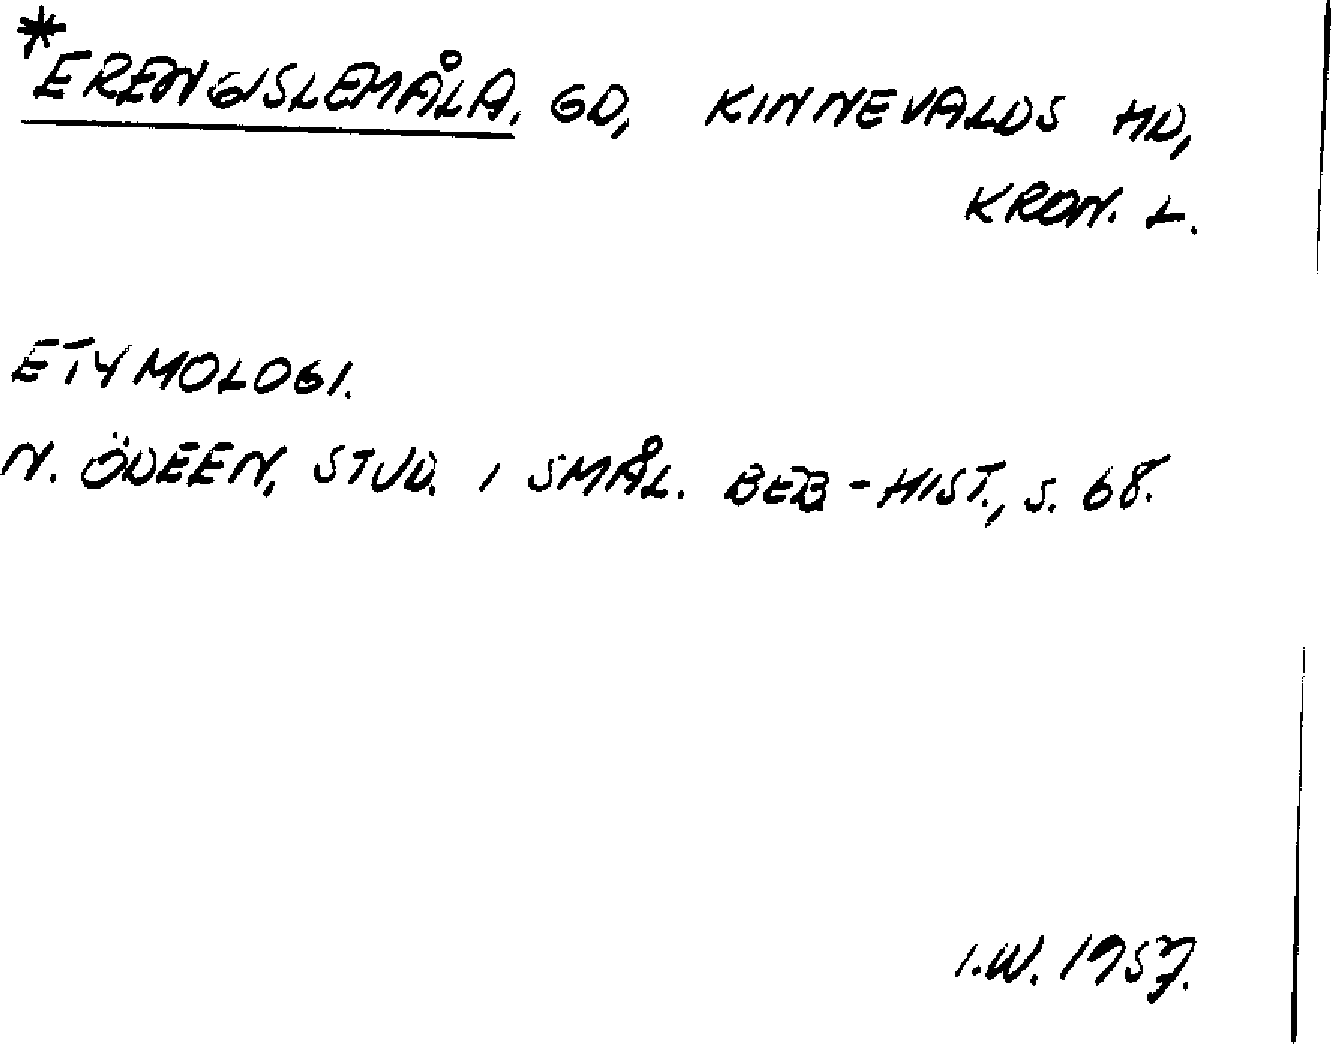 *ERENGISLEMÅLA, GD, KINNEVALDS HD,
KRON. L.
ETYMOLOGI.
N. ÖDEEN, STUD. I SMÅL. BEB-HIST., S. 68.
I.W. 1957.